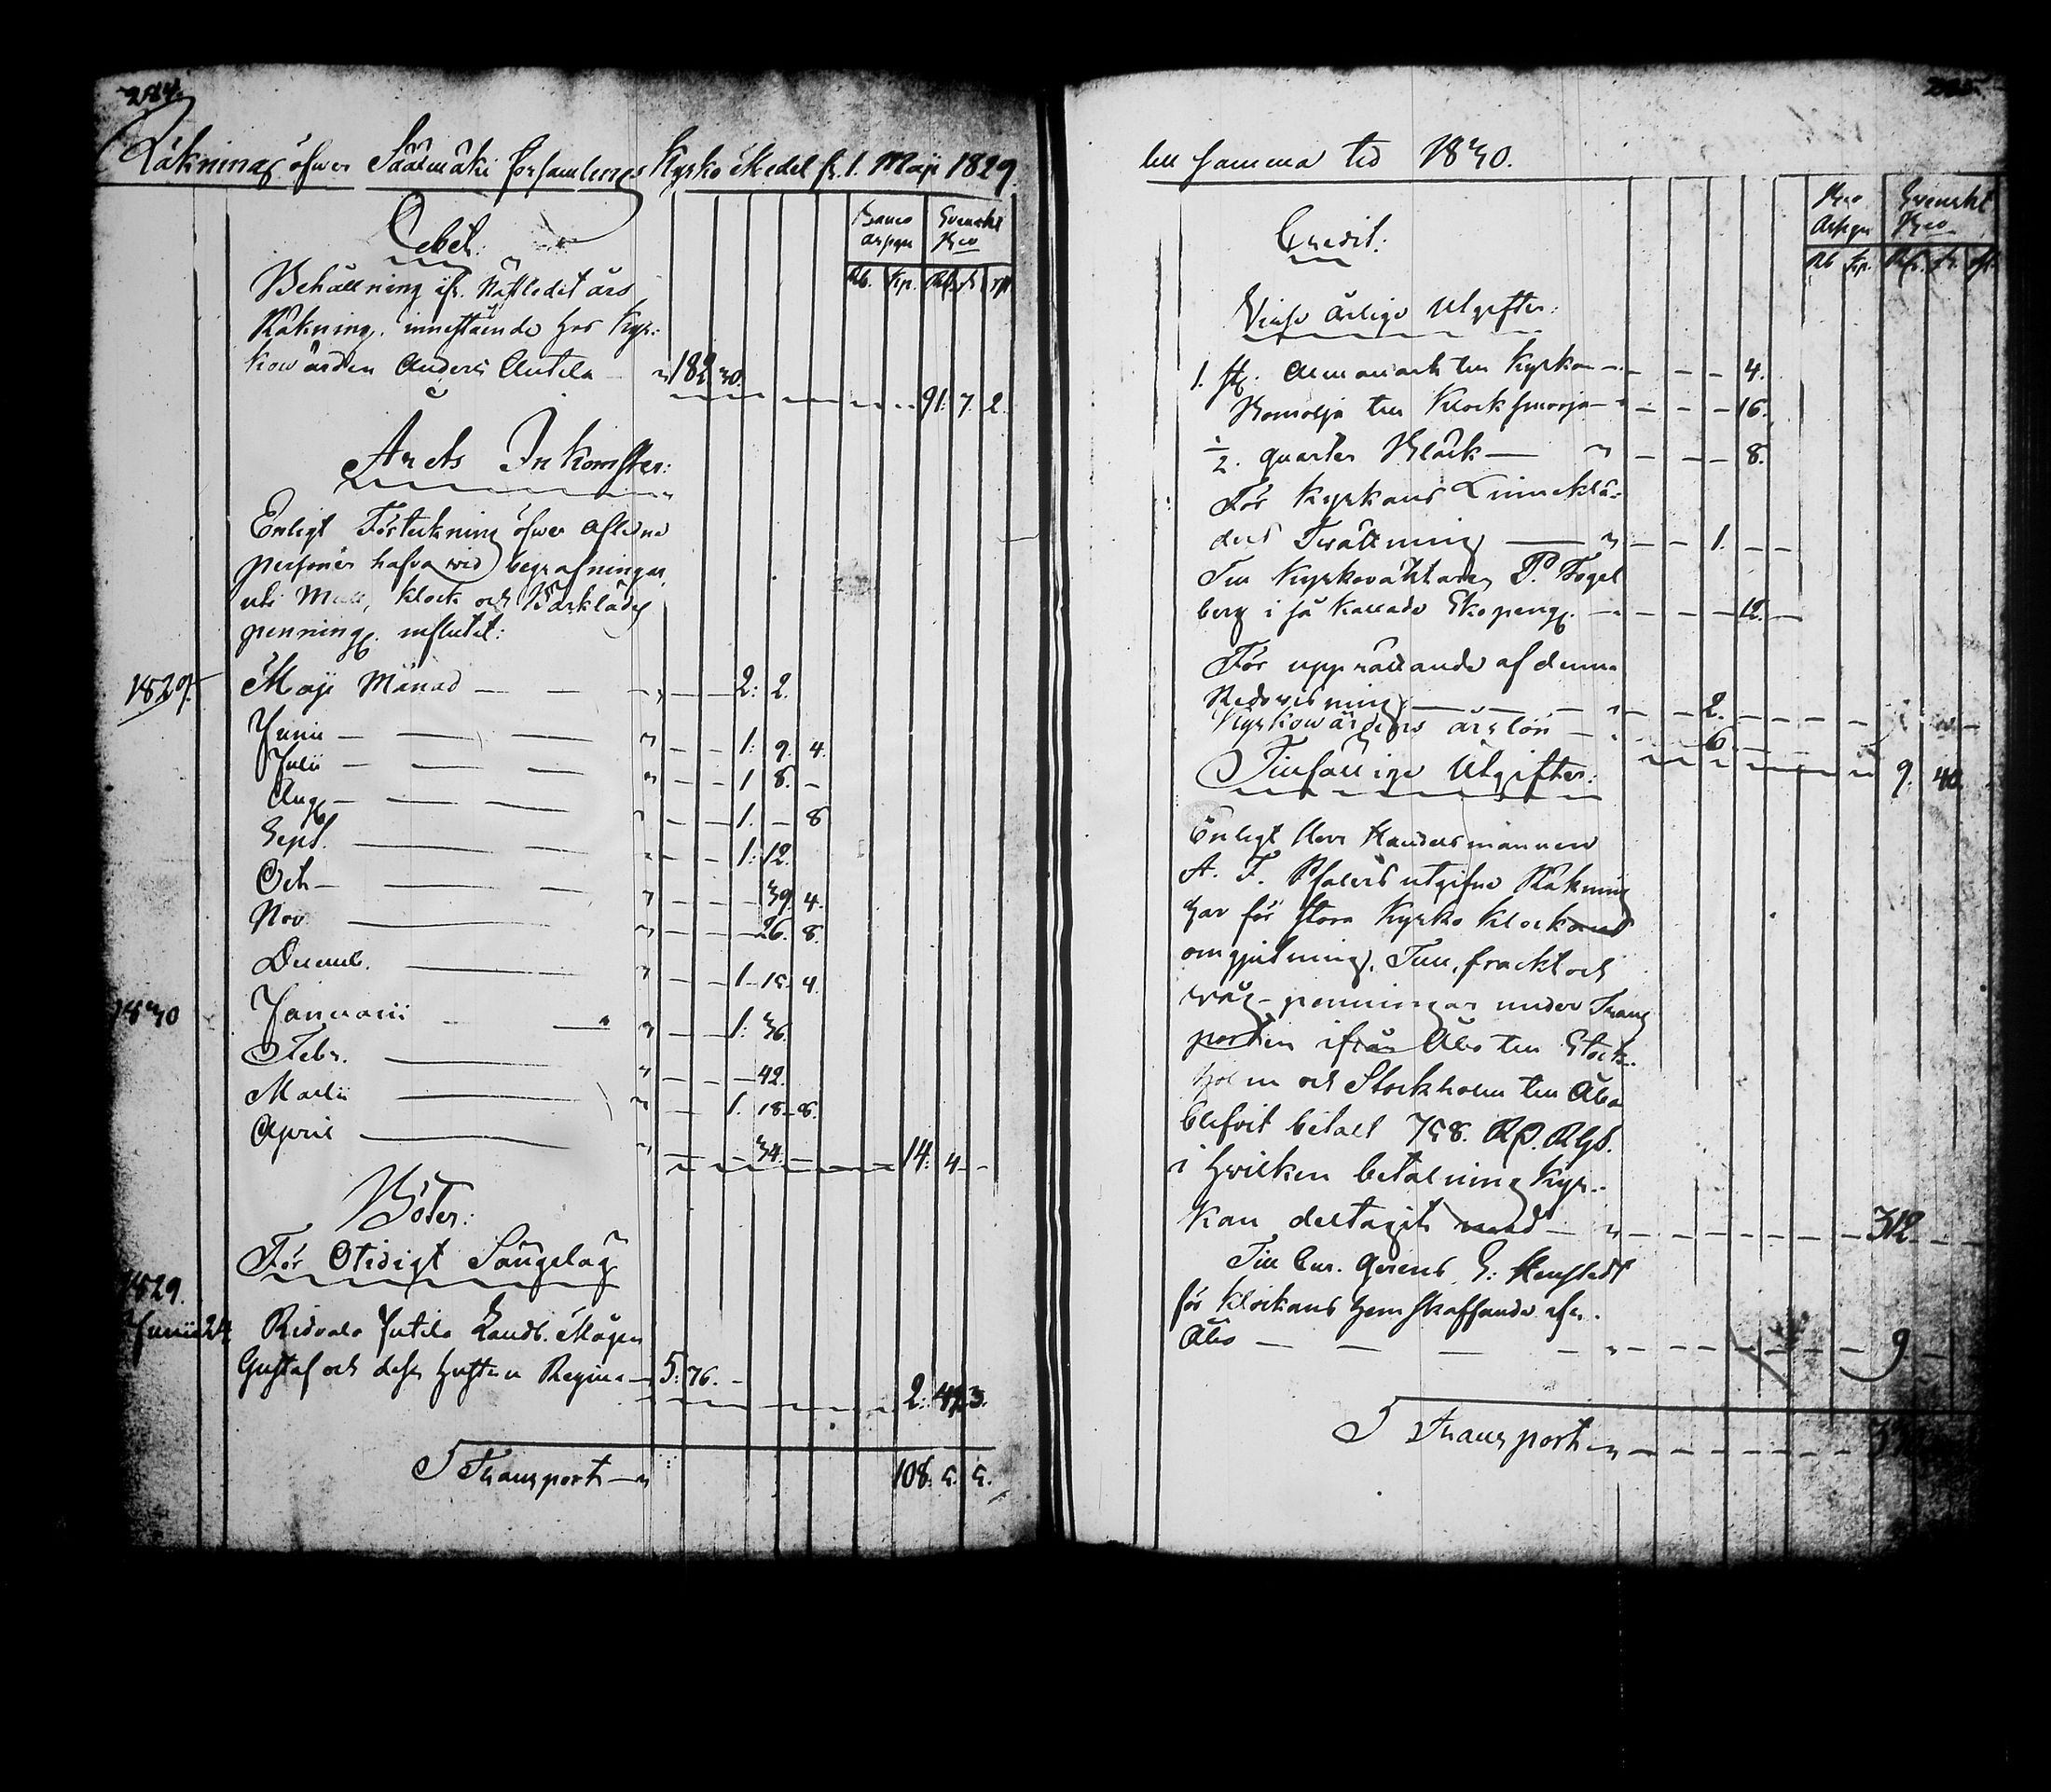 284.
Räkning öfwer Sääxmäki församlings Kyrko Medel fr. 1. Maji 1829
Debet:
Banco Assign Svenskt Bco
Rb. Kp. Rd. sk rst
Behållning ifr. Nästledit års
Räkning, innestående hos Kyr-
kowärden Anders Anttila — " 182 30.
91. 7. 2.
Årets Inkomster:
Enligt Förtekning öfwer aflidne
personer hafva wid begrafningar,
uti Mull, Klock och Bårklädes
penningr. influtit:
1829. Maji Månad — — " — — 2: 2.
Junii — — — " — — 1: 9. 4.
Julii — — — " — — 1 8. —
Aug. — — — " — — 1. — 8
Sept. — — " — — 1: 12.
Oct. — — — " — — — 39. 4.
Nov. — " — — — 26. 8.
Decemb. — " — — 1 — 15. 4.
1830 Januarii — — " — — 1: 36.
Febr. — " — — — 42.
Martii — " — — 1. 18 — 8.
April — " — — — 34. — 14. 4 —
Böter:
För Otidigt Sängelag
1829.
Junii 24 Ridvala Jutila Landb. Mågen
Gustaf och dess Hustru Regina — 5: 76. —
2: 42. 3.
Transport — " 108. 5. 5.
285.
till samma tid 1830.
Credit:
Bco Assign Svenskt Bco
Rb Kp. Rd. sk. rst.
Visse årlige Utgifter:
1. st. Almanach till Kyrkan — — — — 4.
Bomolja till Klocksmörja — — — — 16.
1/2. quarter Bläck — " — — — 8.
För Kyrkans Linneklä-
ders Twättning — " — — 1. — —
Till Kyrkovaktaren P. Fogel
berg i så kallade Skopengr. — — — 12. —
För upprättande af denna
Redovisning — — — " — — 2. — — — —
Kyrkowärdens årslön — " — 6. — —
9. 40.
Tillfällige Utgifter:
Enligt Herr Handelsmannen
A. F. Phalers utgifne Räkning
gar för stora Kyrko Klockans
omgjutning, Tull, frackt och
wåg-penningar under Trans
porten ifrån Åbo till Stock-
holm och Stockholm till Åbo
blifvit betalt 758. RD. RGS.
i hvilken betalning Kyr-
kan deltagit med — " — — — — — — 312 — —
Till Cur. Gerens G: Henstedt
för Klockans hemskaffande ifr.
Åbo — — — — " — — — — — — — 9 — —
Transport — " — — — — — —